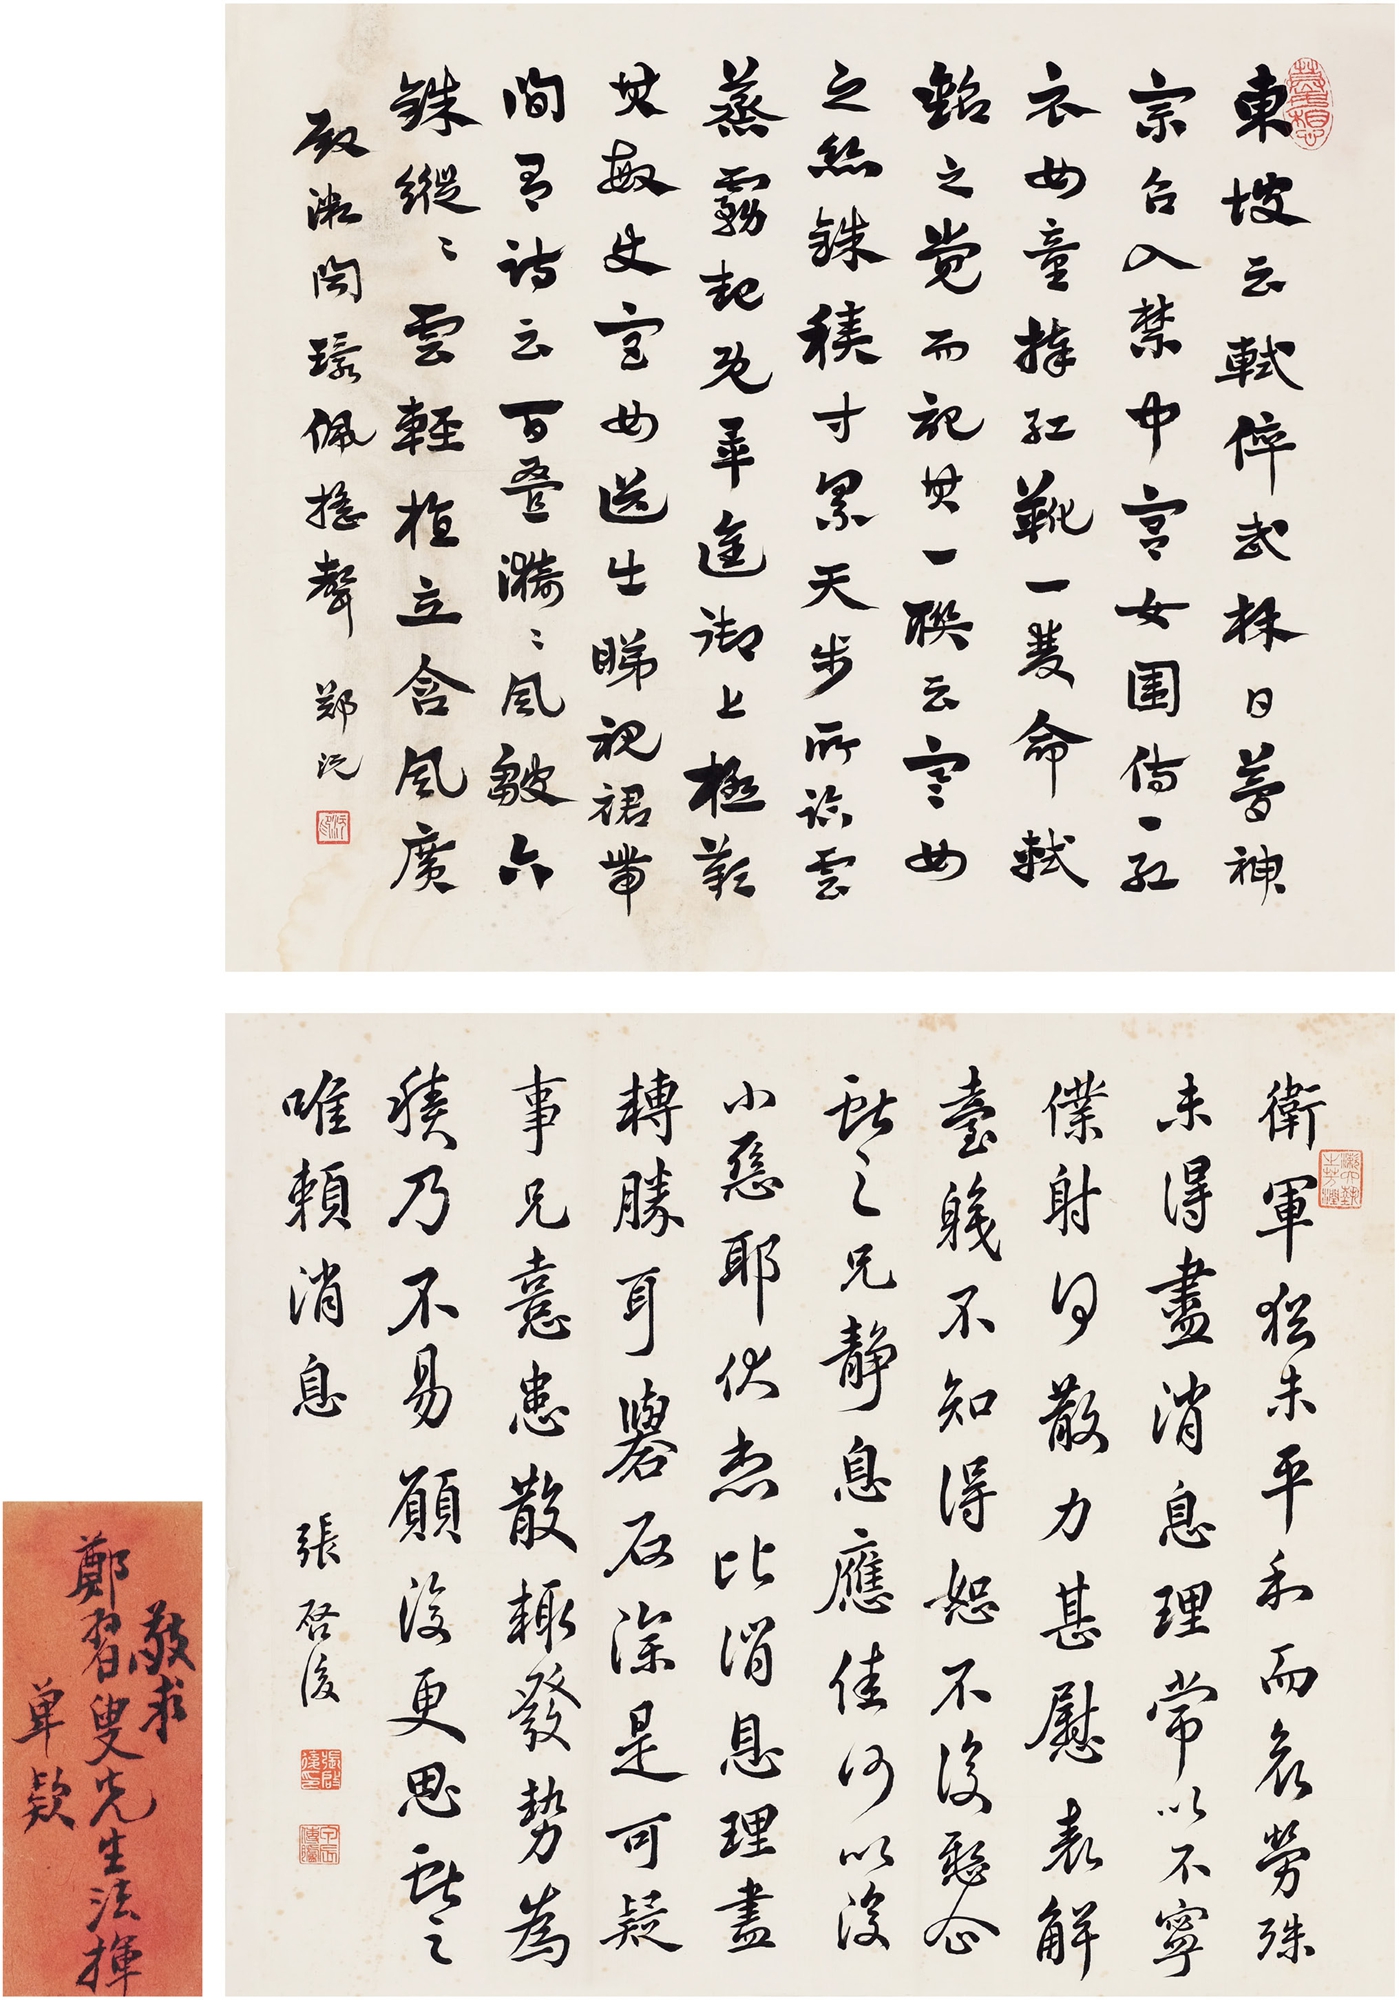 東坡云軾倅武林日夢神
宗召入禁中宮女圍侍一紅
衣女童捧紅靴一雙命軾
銘之覺而記其一聯云寒女
之絲銖積寸累天步所臨雲
蒸霧起既畢進御上極歎
其敏使宮女送出睇視裙帶
間有詩云百疊漪漪風皺六
銖縱縱雲輕植立含風廣
殿微聞環佩搖聲
鄭沅
衛軍猶未平和而哀勞殊
未得盡消息理常以不寧
僕射得散力甚慰表解
臺職不知得恕不復懸心
獻之兄靜息應佳何以復
小惡耶伏想比消息理盡
轉勝耳礜石深是可疑
事兄憙患散輒發癰為
積乃不易願復更思獻之
唯賴消息
張啓後
敬求
鄭習叟先生法揮
單款